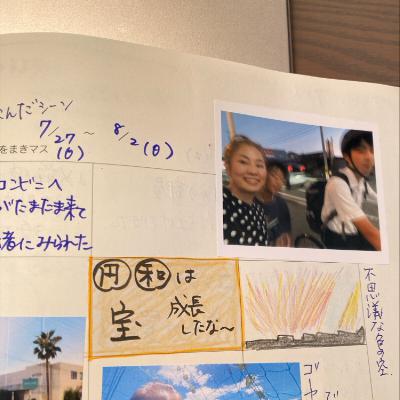 んだシーン
7/27(月)~8/2(日)
をまきマス
コンビニへ
がたまたま来て
者にみられた
円 和 は
宝 成長
したな〜
不思議な色の空
ゴーヤ